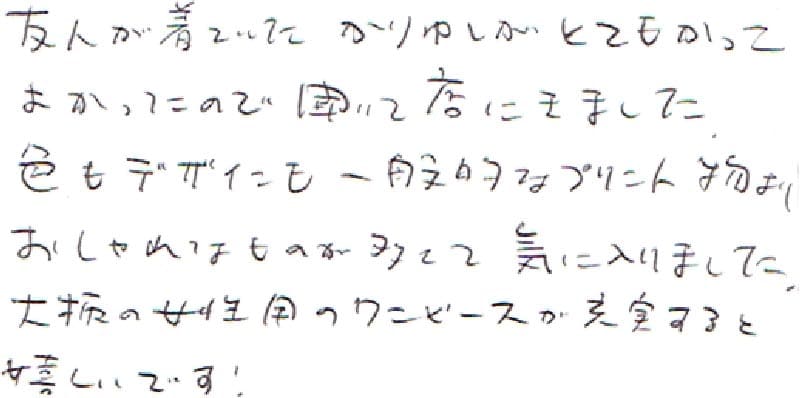 友人が着ていた かりゆしが とてもかって
よかったので 聞いて 店にきました。
色もデザインも 一般的なプリント物より
おしゃれなものが多くて 気に入りました。
大柄の女性用のワンピースが充実すると
嬉しいです!